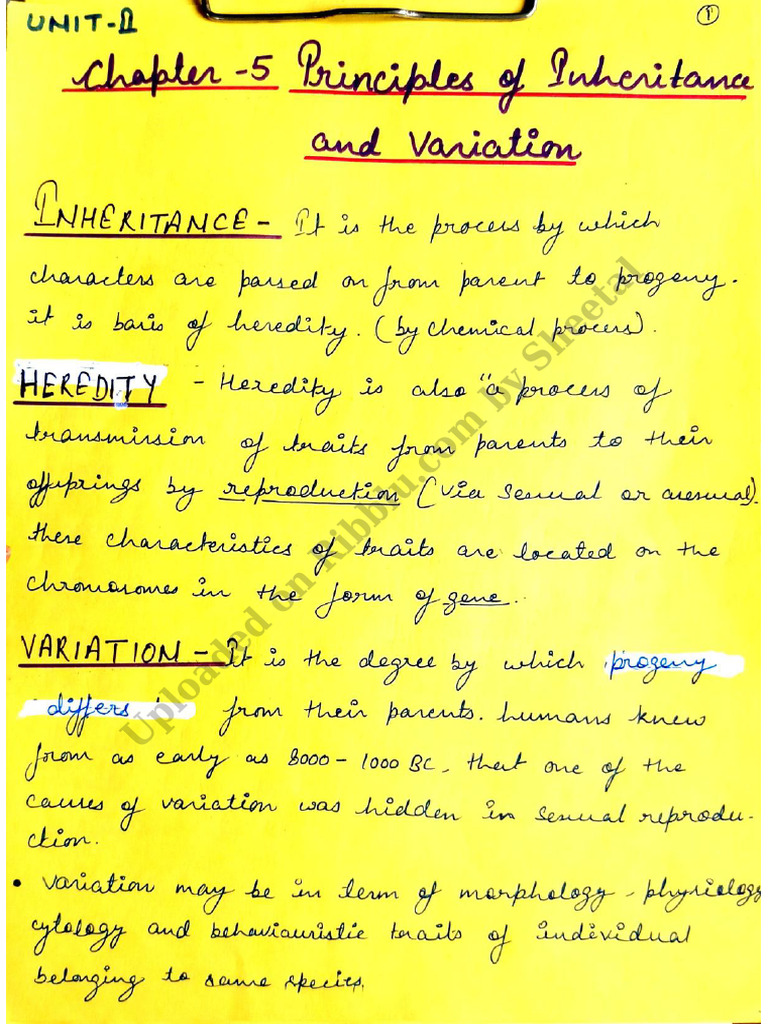 UNIT-II
1
Chapter -5 Principles of Inheritance
and Variation
INHERITANCE - It is the process by which
characters are passed on from parent to progeny.
it is basis of heredity. (by chemical process).
HEREDITY - Heredity is also "a process of
transmission of traits from parents to their
offsprings by reproduction (via sexual or asexual).
these characteristics of traits are located on the
chromosomes in the form of gene..
VARIATION - It is the degree by which progeny
differs from their parents. humans knew
from as early as 8000 - 1000 BC, that one of the
causes of variation was hidden in sexual reprodu-
ction.
• Variation may be in term of morphology - physiology
cytology and behaviouristic traits of individual
belonging to same species.
Uploaded on Ribblu.com by Sheetal